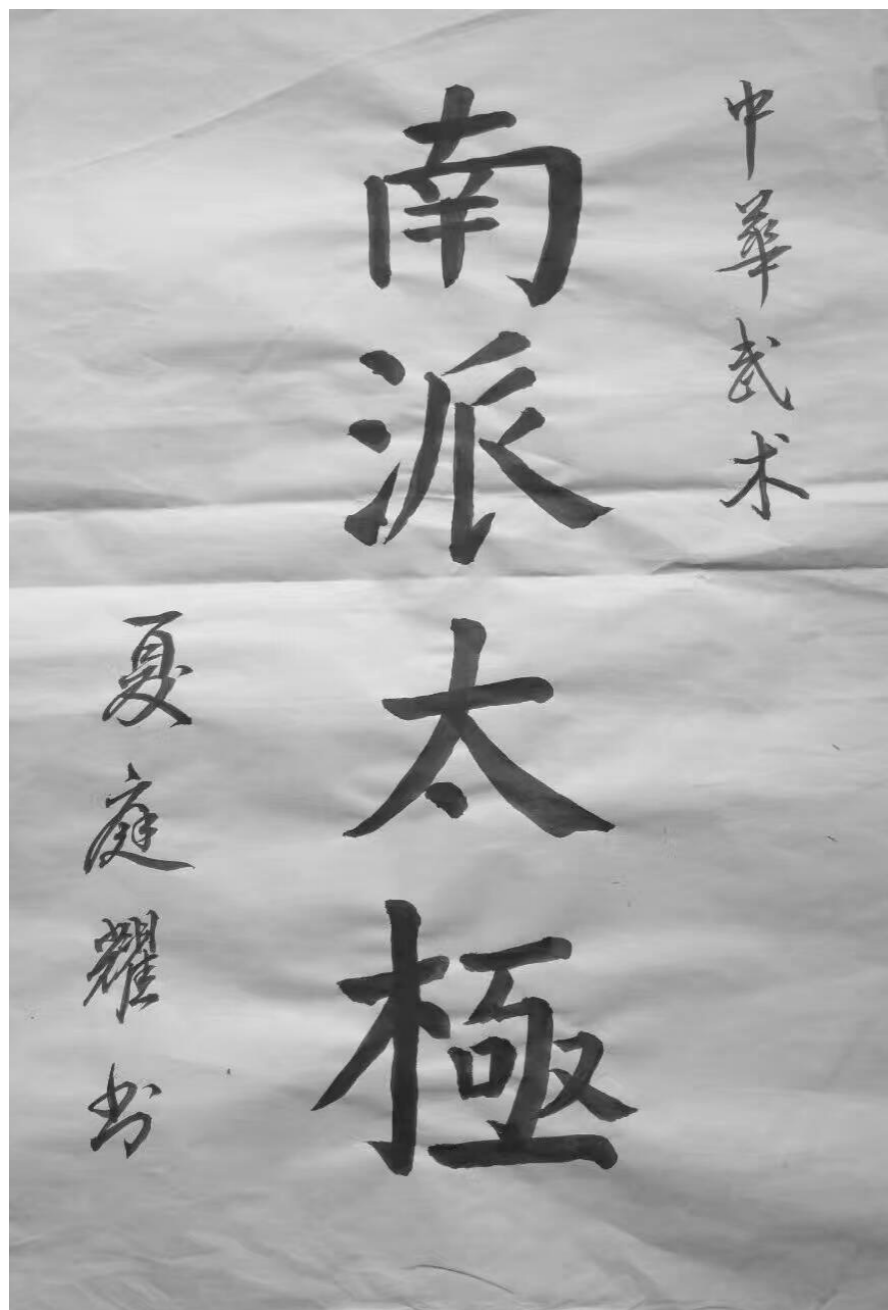 中華武术
南派太極
夏庭耀书